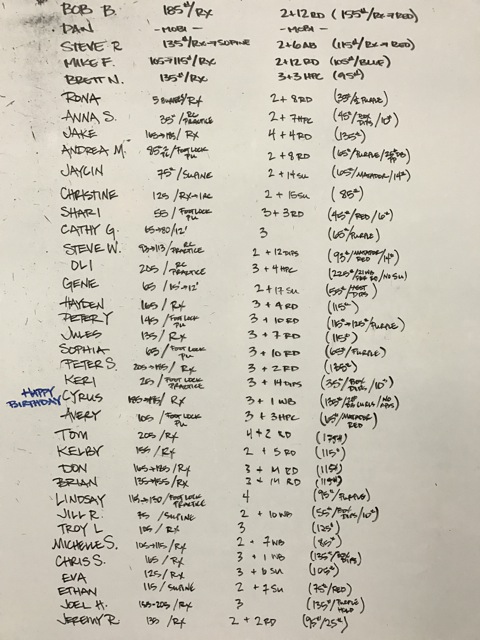 BOB B. 185#/RX 2+12RD (155#/RX→RED)
DAN -MOBI- -MOBI-
STEVE R 135#/RX→SUPINE 2+6AB (115#/RX→RED)
MIKE F. 105→115#/RX 2+12RD (105#/BLUE)
BRETT N. 135#/RX 3+3HPC (95#)
RONA /RX 2+8RD (35#/PURPLE)
ANNA S. 35#/RC PRACTICE 2+7HPC (45#/BOX DIPS/10#)
JAKE /RX 4+4RD (135#)
ANDREA M. /FOOT LOCK PU 2+8RD (65#/PURPLE/
JAYLIN 75#/SUPINE 2+14SU (65#/MATADOR/14#)
CHRISTINE 125/RX→ 2+15SU (85#)
SHARI 55/FOOT LOCK PU 3+3RD (45#/RED/6#)
CATHY G. 65→80/12' 3 (65#/PURPLE)
STEVE W. 93→113/RC PRACTICE 2+12DIPS (93#/MATADOR RED/14#)
OLI 205/RC PRACTICE 3+4HPC (225#/ NO SU)
GENE 65/15'→12' 2+17SU (55#/ DIPS)
HAYDEN 165/RX 3+4RD (115#)
PETER Y 145/FOOT LOCK PU 3+10RD (115→125#/PURPLE)
JULES 135/RX 3+7RD (115#)
SOPHIA 65/FOOT LOCK PU 3+10RD (65#/PURPLE)
PETER S. /RX 3+2RD (135#)
KERI 25/FOOT LOCK PRACTICE 3+14DIPS (35#/BOX DIPS/10#)
HAPPY BIRTHDAY CYRUS /RX 3+1WB (135#/
AVERY 105/FOOT LOCK PU 3+3HPC (65#/MATADOR RED)
TOM 205/RX 4+2RD
KELBY 155/RX 2+5RD (115#)
DON 165→185/RX 3+11RD (115#)
BRIAN 135→155/RX 3+11RD (115#)
LINDSAY 115→130/FOOT LOCK PRACTICE 4 (95#/PURPLE)
JILL R. 75/SUPINE 2+10WB (55#/BOX DIPS/10#)
TROY L 105/RX 3 (125#)
MICHELLE S. 105→115/RX 2+7WB (85#)
CHRIS S. 165/RX 3+1WB (135#/BOX DIPS)
EVA 125/RX 3+6SU (105#)
ETHAN 115/SUPINE 2+7SU (75#/RED)
JOEL H. 155→205/RX 3 (135#/PURPLE
JEREMY R. 135/RX 2+2RD (95#/25#)